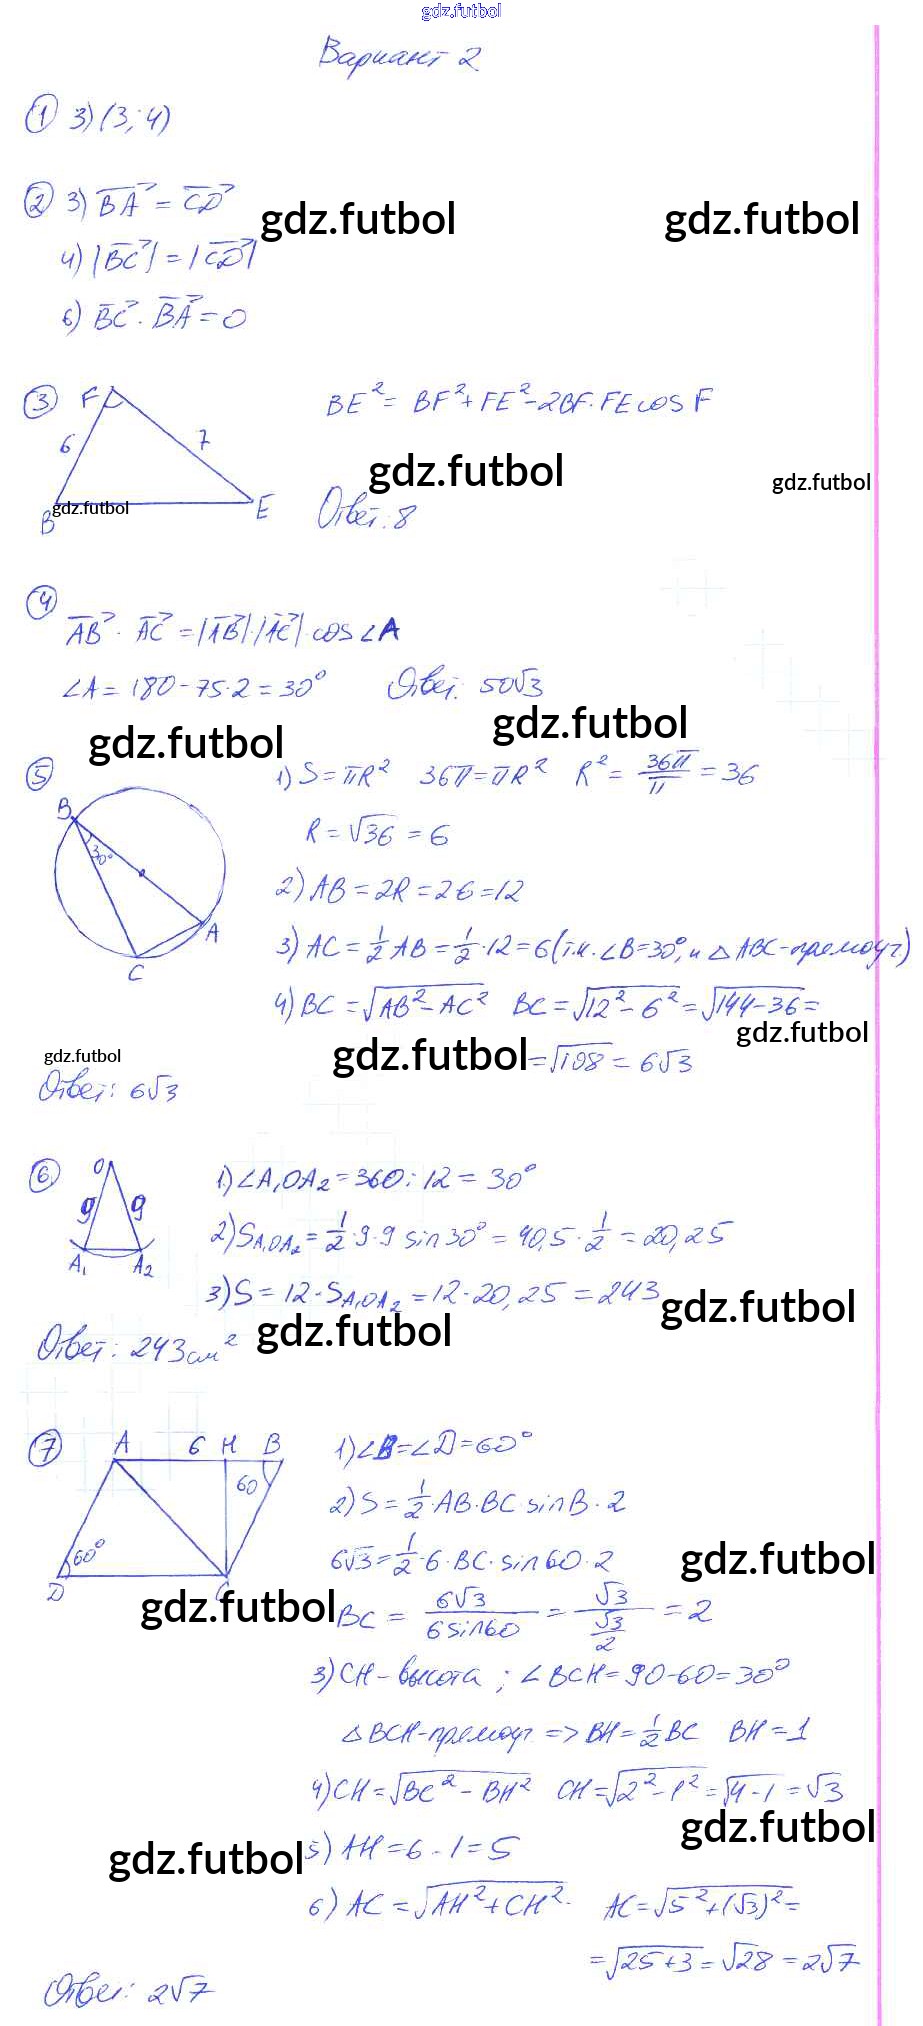 gdz.futbol
Вариант 2
① 3) (3; 4)
② 3) BA = CD
gdz.futbol gdz.futbol
4) |BC| = |CD|
6) BC · BA = 0
③ F BE² = BF² + FE² - 2BF·FE cos F
6 7
gdz.futbol gdz.futbol
B gdz.futbol E Ответ: 8
④
AB · AC = |AB|·|AC| cos ∠A
∠A = 180 - 75·2 = 30° Ответ: 50√3
gdz.futbol gdz.futbol
⑤ 1) S = πR² 36π = πR² R² = 36π/π = 36
B 30° A C
R = √36 = 6
2) AB = 2R = 2·6 = 12
3) AC = 1/2 AB = 1/2 · 12 = 6 (т.к. ∠B = 30°, и △ABC - прямоуг)
4) BC = √AB² - AC² BC = √12² - 6² = √144 - 36 =
gdz.futbol gdz.futbol gdz.futbol
= √108 = 6√3
Ответ: 6√3
⑥ O 1) ∠A₁OA₂ = 360 : 12 = 30°
9 9 2) S A₁OA₂ = 1/2 · 9·9 sin 30° = 40,5 · 1/2 = 20,25
A₁ A₂
3) S = 12 · S A₁OA₂ = 12 · 20,25 = 243
gdz.futbol gdz.futbol
Ответ: 243 см²
⑦ A 6 H B 1) ∠B = ∠D = 60°
60 2) S = 1/2 · AB · BC sin B · 2
60° 6√3 = 1/2 · 6 · BC · sin 60 · 2
gdz.futbol
D C
gdz.futbol BC = 6√3/6 sin 60 = √3/(√3/2) = 2
3) CH - высота ; ∠BCH = 90 - 60 = 30°
△BCH - прямоуг => BH = 1/2 BC BH = 1
4) CH = √BC² - BH² CH = √2² - 1² = √4 - 1 = √3
gdz.futbol
gdz.futbol 5) AH = 6 - 1 = 5
6) AC = √AH² + CH² AC = √5² + (√3)² =
= √25 + 3 = √28 = 2√7
Ответ: 2√7